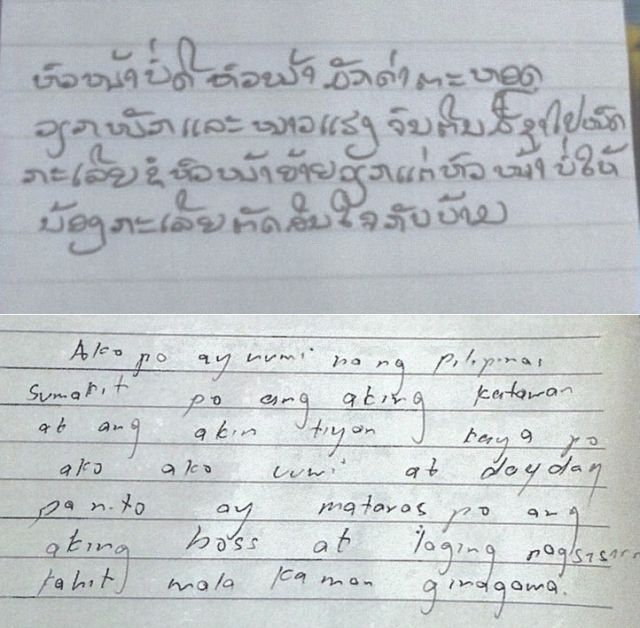 ຫົວໜ້າບໍ່ດີ ຫົວໜ້າ ມັກດ່າຕະຫຼອດ
ວຽກໜັກແລະ ໜາວແຮງ ຈົນຕົນ ໄປໝົດ
ກະເລີຍຂໍຫົວໜ້າຍ້າຍວຽກແຕ່ຫົວໜ້າບໍ່ໃຫ້
ນ້ອງກະເລີຍຕັດສິນໃຈກັບບ້ານ
Ako po ay uumi na ng pilipinas
Sumakit po ang aking katawan
at ang akin tiyan kaya po
ako ako uuwi at dagdag
pa nito ay mataras po ang
aking boss at laging
kahit wala ka man ginagawa.